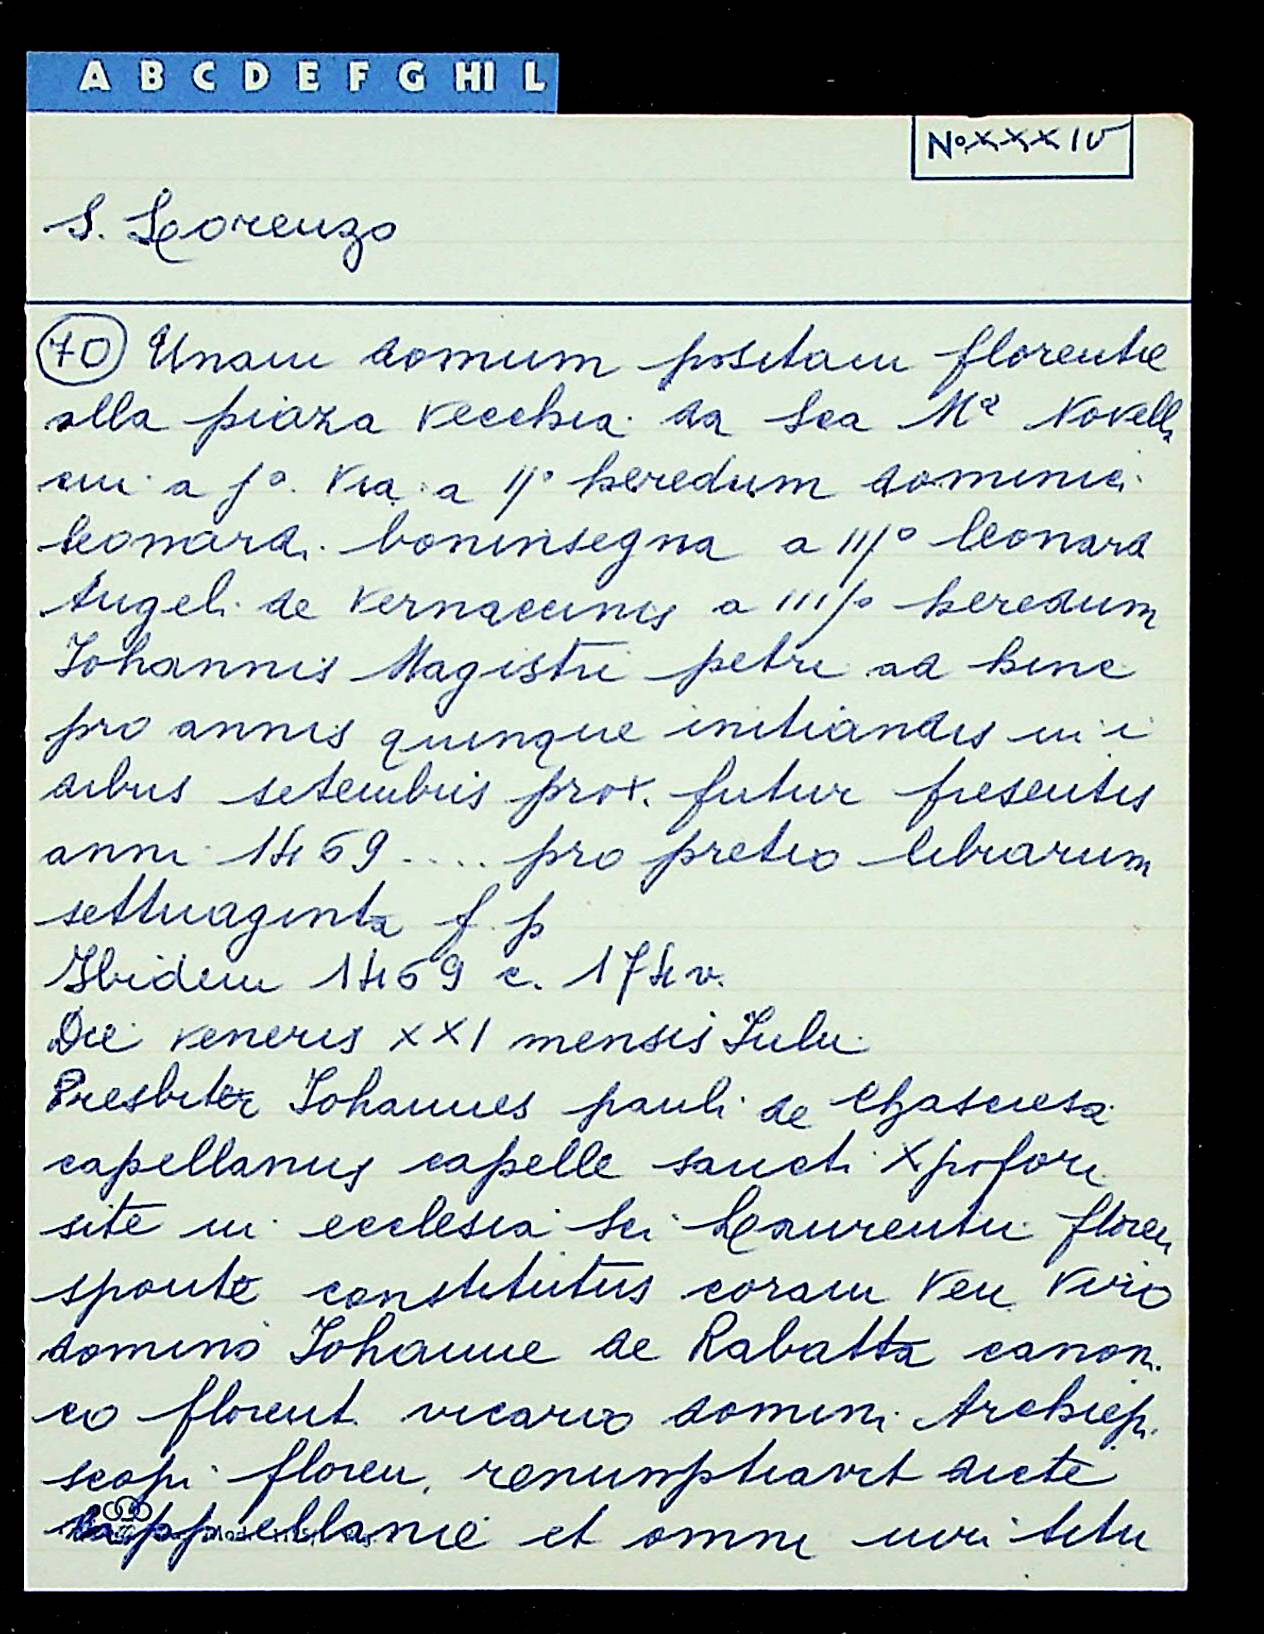 A B C D E F G HI L
No XXXIV
S. Lorenzo
70 Unam domum positam florentie
alla piaza vecchia da Sca Mª Novella
cui a jº via a ijº heredum dominici
leonardi boninsegna a iijº leonard
Angeli de vernaccinis a iiijº heredum
Johannis Magistri petri ad hinc
pro annis quinque initiandis in i
dibus setembris prox. futur presentis
anni 1469 .... pro pretio librarum
settuaginta f. p
Ibidem 1469 c. 174 v.
Die veneris XXI mensis Julii
Presbiter Johannes pauli de
capellanus capelle sancti Xpofori
site in ecclesia Sci Laurentii floren
sponte constitutus coram Ven Viro
domino Johanne de Rabatta canoni
co florent. vicario domini Archiepi
scopi floren. renumptiavit dicte
cappellanie et omni iuri titu